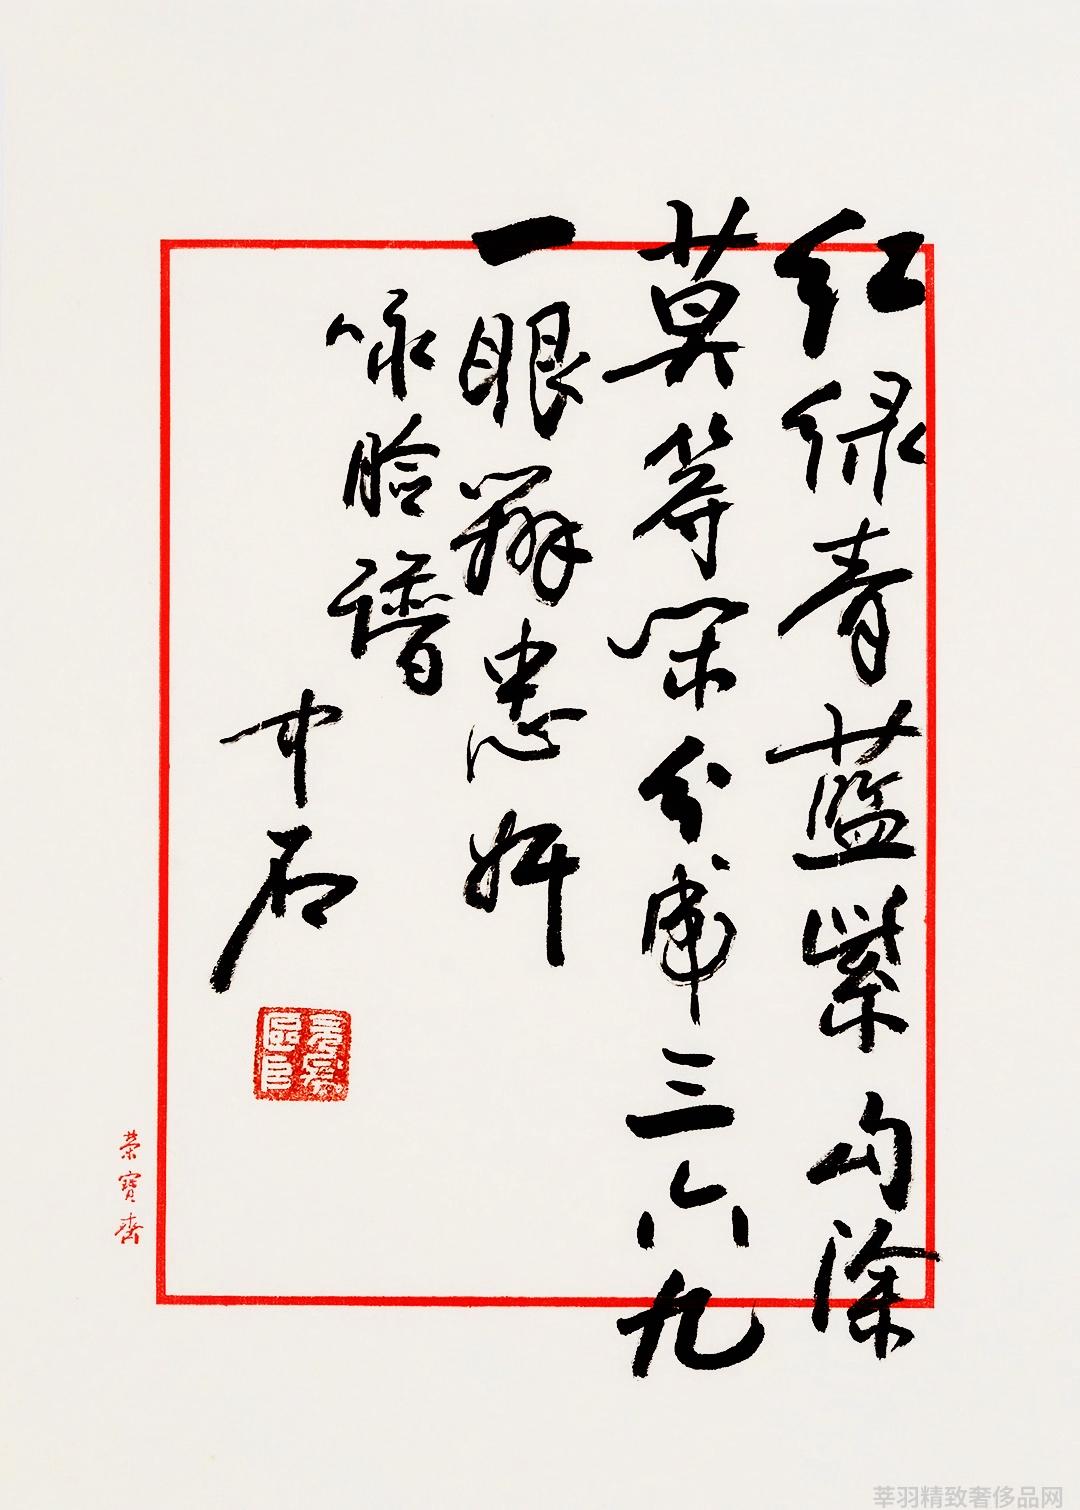 红绿青蓝紫勾涂
莫等闲分三六九
一眼辨忠奸
咏脸谱
中石
荣寶齋
莘羽精致奢侈品网